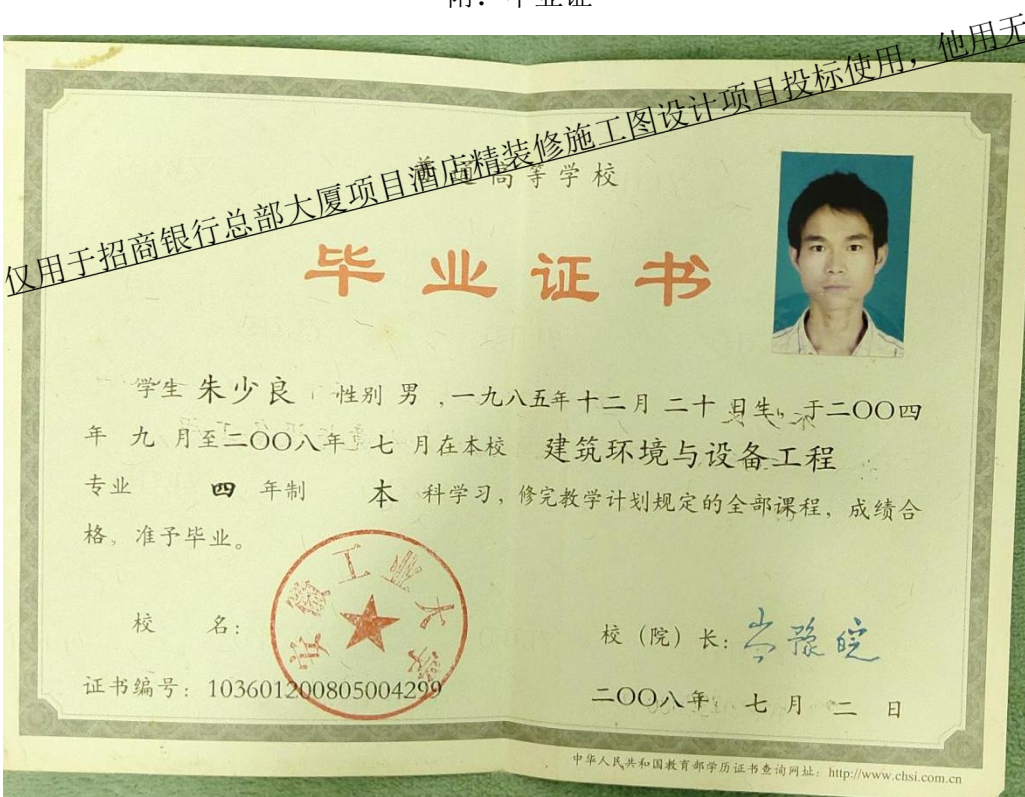 附：毕业证
仅用于招商银行总部大厦项目酒店精装修施工图设计项目投标使用，他用无
普通高等学校
毕业证书
学生 朱少良 性别 男 ,一九八五年十二月 二十 日生，于二〇〇四
年 九 月至二〇〇八年 七 月在本校 建筑环境与设备工程
专业 四 年制 本 科学习，修完教学计划规定的全部课程，成绩合
格，准予毕业。
安徽工业大学
校 名：
校（院）长：岑豫皖
证书编号：103601200805004299
二〇〇八年 七 月 二 日
中华人民共和国教育部学历证书查询网址：http://www.chsi.com.cn